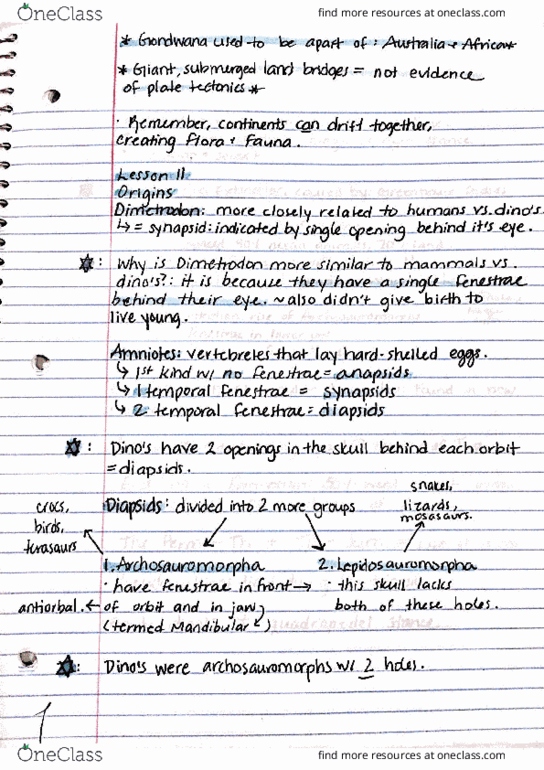 OneClass
find more resources at oneclass.com
* Gondwana used to be apart of: Australia + Africa*
* Giant, submerged land bridges = not evidence
of plate tectonics *
· Remember, continents can drift together,
creating flora + fauna.
Lesson 11
Origins
Dimetrodon: more closely related to humans vs. dino's.
↳ = synapsid: indicated by single opening behind it's eye.
: Why is Dimetrodon more similar to mammals vs.
dino's?: it is because they have a single fenestrae
behind their eye. ~also didn't give birth to
live young.
Amniotes: vertebreles that lay hard-shelled eggs.
↳ 1st kind w/ no fenestrae = anapsids
↳ 1 temporal fenestrae = synapsids
↳ 2 temporal fenestrae = diapsids
: Dino's have 2 openings in the skull behind each orbit
= diapsids.
Diapsids: divided into 2 more groups
crocs,
birds,
terasaurs
snakes,
lizards,
mosasaurs.
1. Archosauromorpha
· have fenestrae in front →
antiorbal. ← of orbit and in jaw,
(termed Mandibular)
2. Lepidosauromorpha
· this skull lacks
both of these holes.
: Dino's were archosauromorphs w/ 2 holes.
1
OneClass
find more resources at oneclass.com